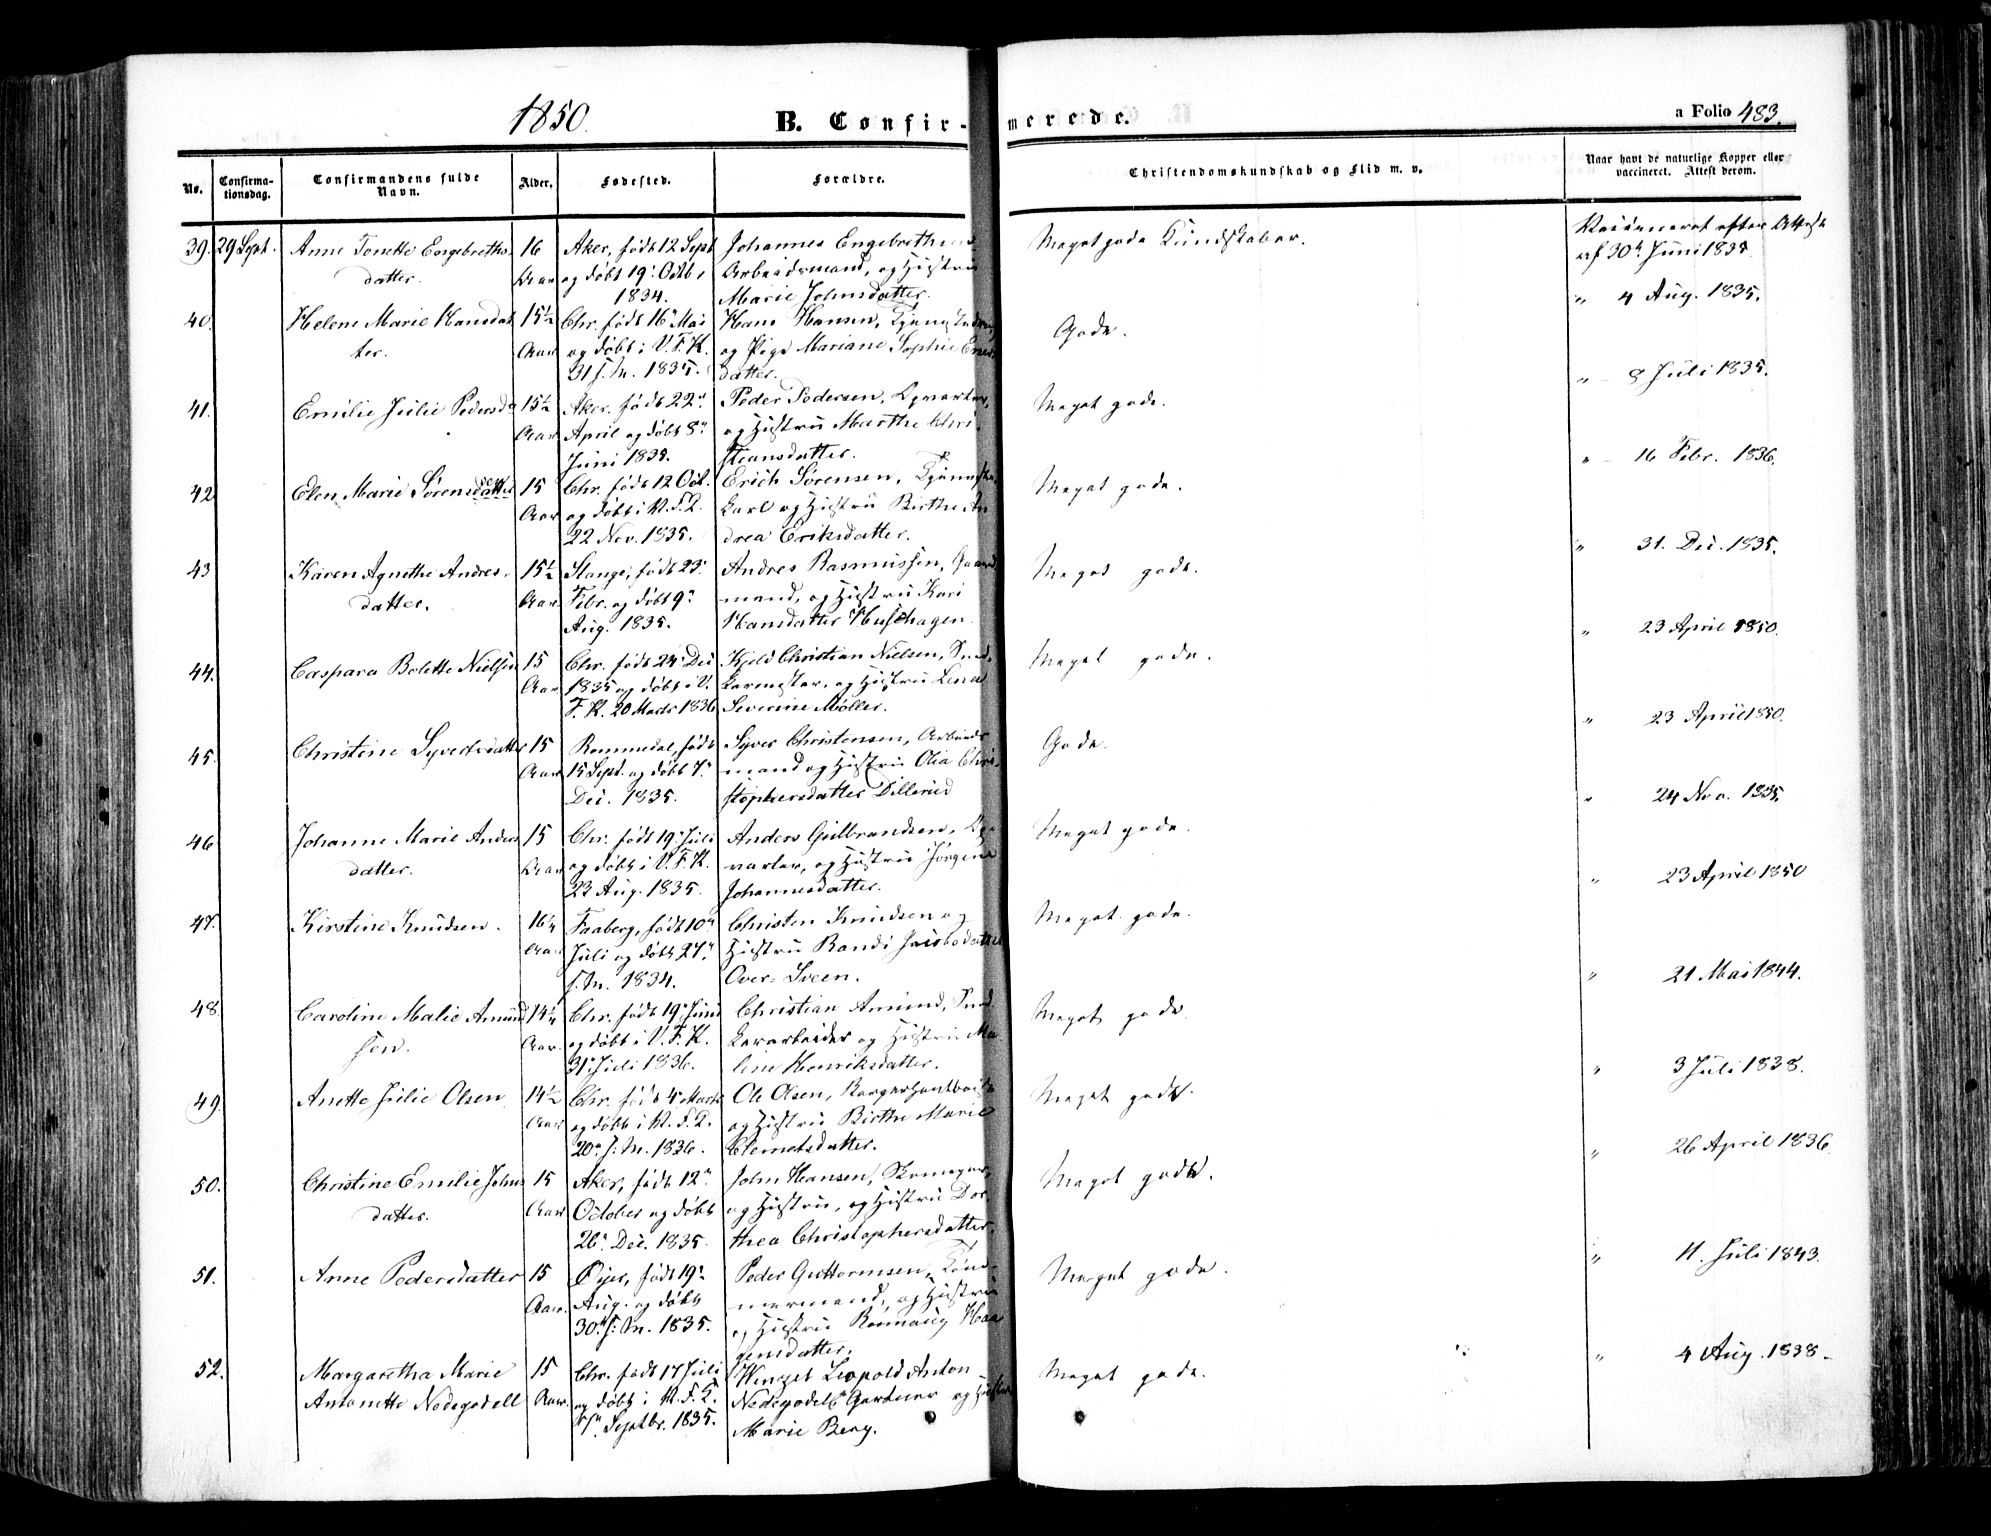 1850.
B. Confir-merede.
a Folio 483.
No.
Confirma-
tionsdag.
Confirmandens fulde
Navn.
Alder.
Fødested.
Forældre.
Christendomskundskab og Flid m. v.
Naar havt de naturlige Kopper eller
vaccineret. Attest derom.
39. 29 Sept. Anne Tonette Engebreths- 16 Aker, født 12 Sept Johannes Engebrethsen Meget gode Kundskaber. Vaccineret efter Attest
datter. Aar og døbt 19' Octb. Arbeidsmand, og Hustru af 30te Juni 1835
1834. Marie Johnsdatter.
40. Helene Marie Hansdat 15½ Chr. født 16' Mai Hans Hansen, Gode. " 4 Aug. 1835.
ter. Aar og døbt i V. F. K. og Pige Mariane Sophie
31 s. M. 1835. datter.
41. Emilie Julie Pedersda 15½ Aker. født 22" Peder Pedersen, Opvarter, Meget gode. " 8 Juli 1835.
Aar April og døbt 8" og Hustru Marthe Chri
Juni 1835. stiansdatter.
42. Elen Marie Sørensdatter sen 15 Chr. født 12 Oct. Erich Sørensen, Meget gode. " 16 Febr. 1836.
Aar og døbt i V. F. K. karl og Hustru Birthe An
22 Nov. 1835. drea Eriksdatter.
43 Karen Agnethe Andres- 15½ Stange, født 23' Andres Rasmussen, Gaard Meget gode. " 31. Dec. 1835.
datter. Aar Febr. og døbt 9" mand, og Hustru Kari
Aug. 1835. Hansdatter Huschagen.
44. Caspara Bolette Nielsen 15 Chr. født 24' Dec Kjeld Christian Nielsen, Sned- Meget gode. " 23 April 1850.
Aar 1835 og døbt i V. kermester, og Hustru Lena
F. K. 20 Marts 1836 Severine Møller.
45. Christine Syversdatter 15 Rommedal, født Syver Christensen, Arbeids Gode. " 23 April 1850.
Aar 15 Sept. og døbt 7" mand og Hustru Olia Chri-
Dec. 1835. stophersdatter Dillerud
46 Johanne Marie Anders 15 Chr. født 19' Juli Anders Gulbrandsen, Op- Meget gode. " 24 Nov. 1835.
datter. Aar og døbt i V. F. K. varter, og Hustru Jørgine
23 Aug. 1835. Johannesdatter.
47. Kirstine Knudsen. 16¼ Faaberg, født 10" Christen Knudsen og Meget gode. " 23 April 1850
Aar Juli og døbt 27" Hustru Randi Jacobsdatter
s. M. 1834. Over-Sveen.
48. Caroline Malie Amund 14¼ Chr. født 19' Juni Christian Amund, Sned- Meget gode " 21 Mai 1844.
sen. Aar. og døbt i V. F. K. kerarbeider og Hustru Ma
31' Juli 1836. line Henriksdatter.
49. Anette Julie Olsen 14½ Chr. født 4' Marts Ole Olsen, Meget gode. " 3 Juli 1838.
Aar og døbt i V. F. K. og Hustru Birthe Marie
20" s. M. 1836. Clemetsdatter.
50. Christine Emilie Johns 15 Aker, født 12" John Hansen, Skomager, Meget gode. " 26 April 1836
datter. Aar October og døbt og Hustru, og Hustru Dor
26" Dec. 1835. thea Christophersdatter.
51. Anne Pedersdatter 15 Øyer, født 19' Peder Guttormsen, Tøm- Meget gode. " 11. Juli 1843.
Aar. Aug. og døbt mermand, og Hustru
30" s. M. 1835. og Hustru Rønnaug Haa
gensdatter.
52. Margaretha Marie 15 Chr. født 17 Juli Leopold Anton Meget gode. " 4 Aug. 1838.
Antonette Nedegodell Aar. og døbt i V. F. K. Nedegodell Gartner og Hustru
Septbr. 1835. Marie Berg.